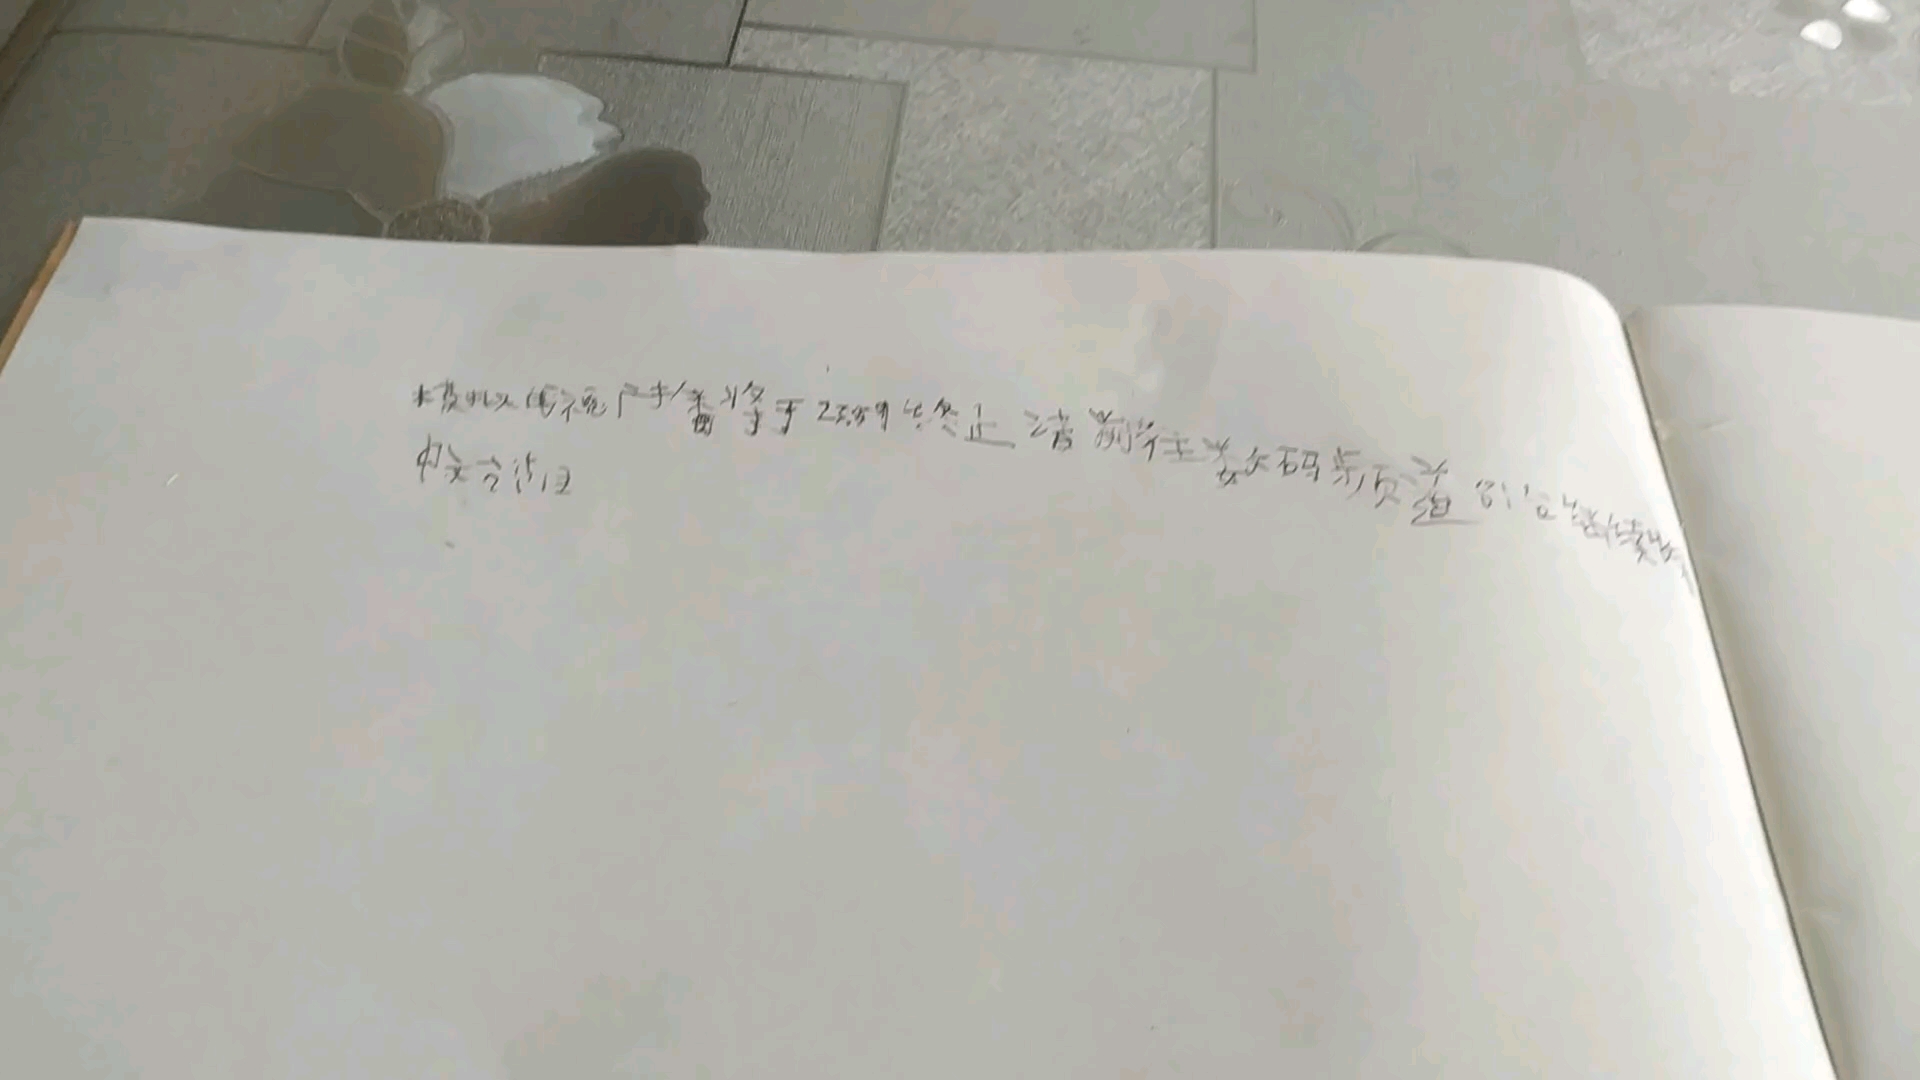 模拟电视广播将于23:59终止 请前往数码频道81 继续收
收看节目